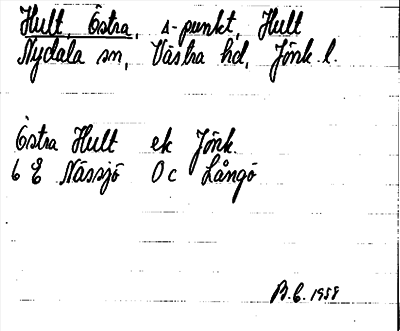 Hult, Östra, s-punkt, Hult
Nydala sn, Västra hd, Jönk. l.
Östra Hult ek Jönk.
6 E Nässjö 0c Långö
B.E. 1958